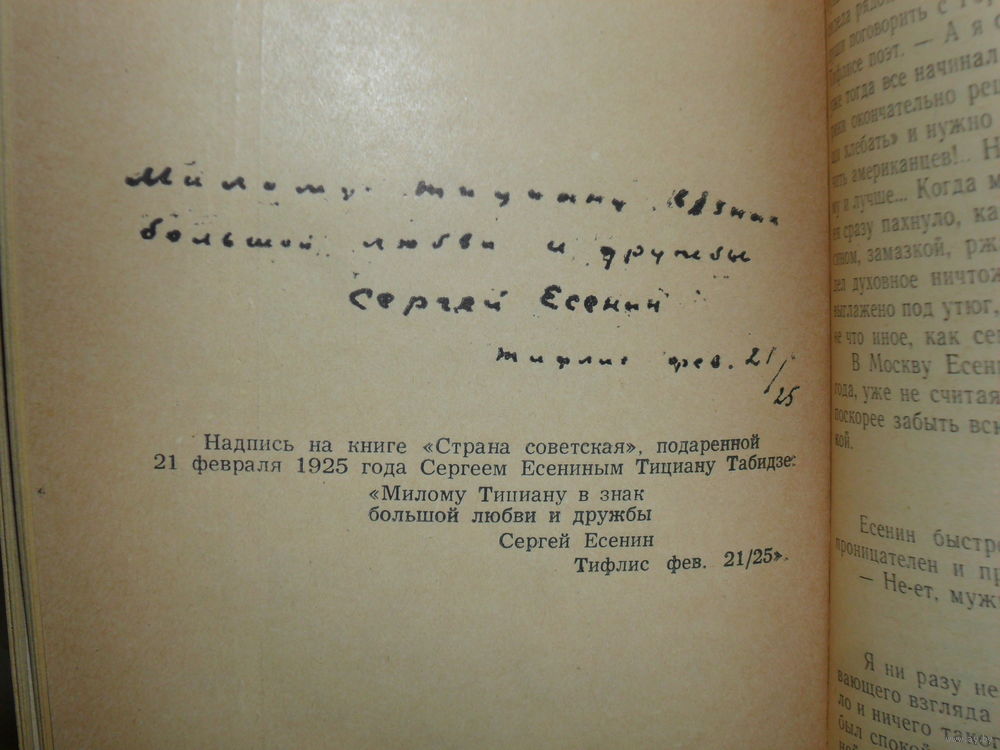 Милому Тициану в знак
большой любви и дружбы
Сергей Есенин
Тифлис фев. 21/25
Надпись на книге «Страна советская», подаренной
21 февраля 1925 года Сергеем Есениным Тициану Табидзе:
«Милому Тициану в знак
большой любви и дружбы
Сергей Есенин
Тифлис фев. 21/25».
поговорить с
поэт. — А я с
тогда все начинал
окончательно
хлебать» и нужно
американцев!.. Н
и лучше... Когда м
сразу пахнуло, ка
замазкой, рж
духовное ничтож
под утюг,
не что иное, как се
В Москву Есен
года, уже не считая
поскорее забыть вс
кой.
Есенин быстр
проницателен и п
— Не-ет, муж
Я ни разу не
вающего взгляда
ло и ничего тако
был споко